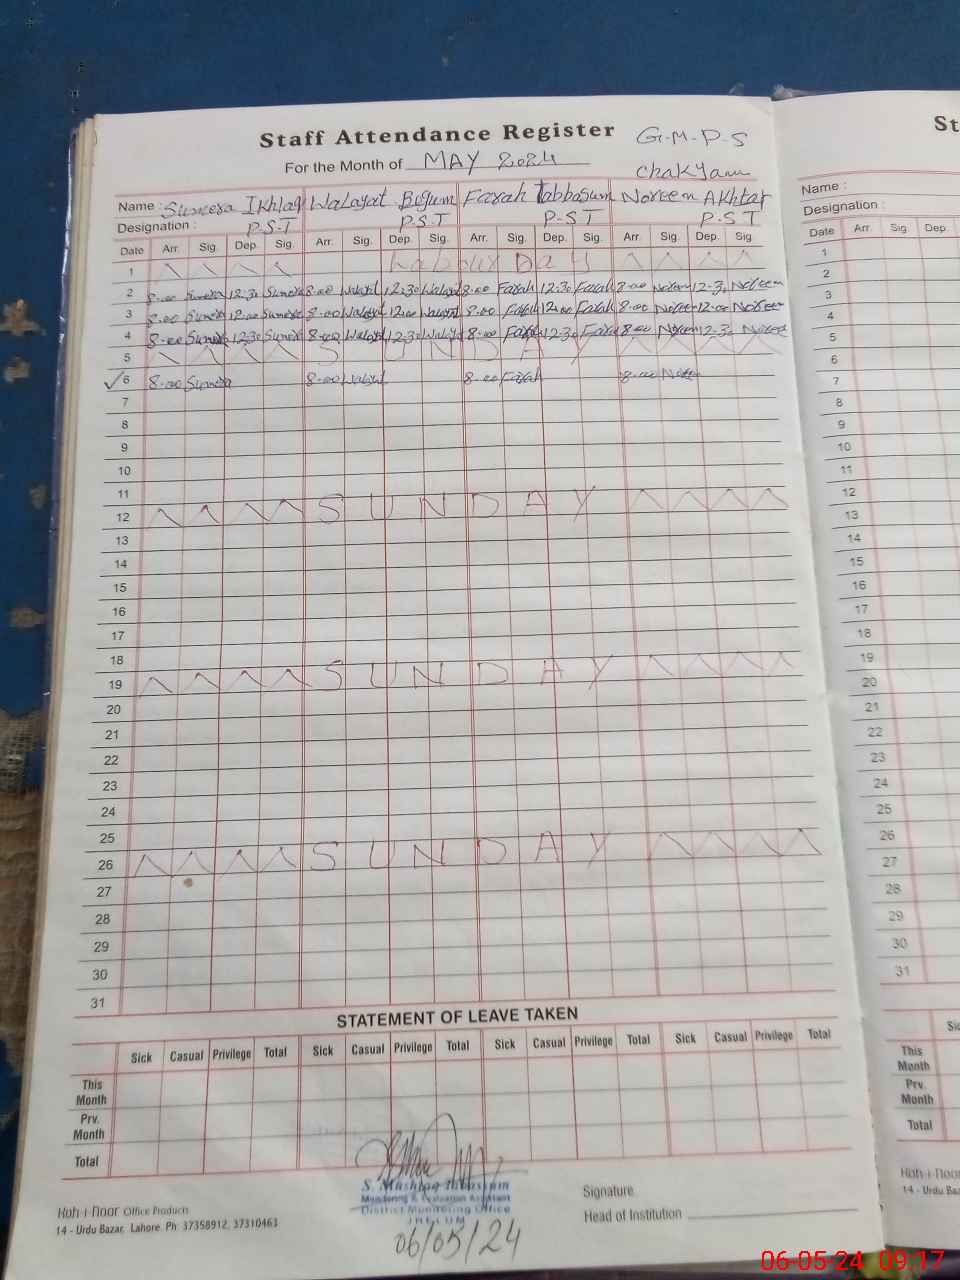 Staff Attendance Register G.M.P.S
For the Month of MAY 2024 Chakyam
Name : Sumera Ikhlaq Walayat Begum Farah Tabbasum Noreen Akhtar
Designation : P.S.T P.S.T P-ST P.S.T
Date Arr. Sig. Dep. Sig. Arr. Sig. Dep. Sig. Arr. Sig. Dep. Sig. Arr. Sig. Dep. Sig.
1 Labour Day
2 8-00 Sumera 12:30 Sumera 8-00 Walayat 12:30 Walayat 8-00 Farah 12:30 Farah 8-00 Noreen 12-30 Noreen
3 8-00 Sumera 12:00 Sumera 8-00 Walayat 12:00 Walayat 8-00 Farah 12:00 Farah 8-00 Noreen 12-00 Noreen
4 8-00 Sumera 12:30 Sumera 8-00 Walayat 12:30 Walayat 8-00 Farah 12:30 Farah 8-00 Noreen 12-30 Noreen
5 SUNDAY
6 8-00 Sumera 8-00 Walayat 8-00 Farah 8-00 Noreen
7
8
9
10
11
12 SUNDAY
13
14
15
16
17
18
19 SUNDAY
20
21
22
23
24
25
26 SUNDAY
27
28
29
30
31
STATEMENT OF LEAVE TAKEN
Sick Casual Privilege Total Sick Casual Privilege Total Sick Casual Privilege Total Sick Casual Privilege Total
This Month
Prv. Month
Total
S. Mushtaq
Monitoring & Evaluation Assistant
District Monitoring Office
JHELUM
06/05/24
Signature
Head of Institution
Koh-i-Noor Office Products
14 - Urdu Bazar, Lahore. Ph: 37358912, 37310463
St
Name :
Designation :
Date Arr. Sig. Dep.
1
2
3
4
5
6
7
8
9
10
11
12
13
14
15
16
17
18
19
20
21
22
23
24
25
26
27
28
29
30
31
This Month
Prv. Month
Total
Koh-i-Noor
14 - Urdu Baz
06-05-24 09:17